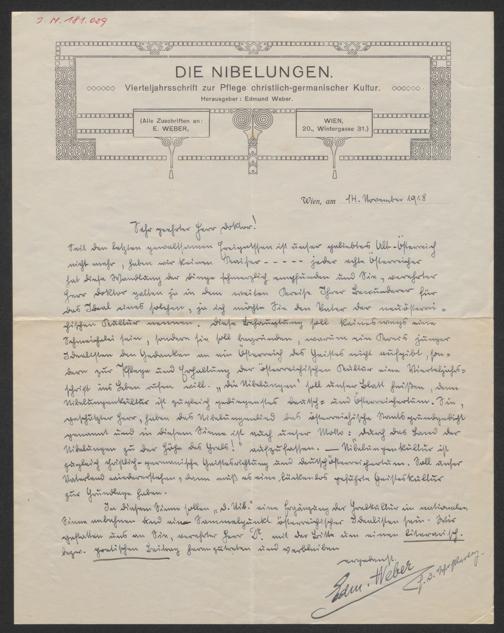 J. N. 181.009
DIE NIBELUNGEN.
Vierteljahrsschrift zur Pflege christlich-germanischer Kultur.
Herausgeber: Edmund Weber.
(Alle Zuschriften an:
E. WEBER,
WIEN,
20., Wintergasse 31.)
Wien, am 14. November 1918
Sehr geehrter Herr Doktor!
Seit den letzten gewaltsamen Ereignissen ist unser geliebtes Alt-Österreich
nicht mehr, haben wir keinen Kaiser - - - - - jeder echte Österreicher
hat diese Wandlung der Dinge schmerzlich empfunden und Sie, verehrter
Herr Doktor gelten ja in dem weiten Kreise Ihrer Bewunderer für
das Ideal eines solchen, ja ich möchte Sie den Vater der neuösterrei-
chischen Kultur nennen. Diese Behauptung soll keineswegs eine
Schmeichelei sein, sondern sie soll begründen, warum ein Kreis junger
Idealisten den Gedanken an ein Österreich des Geistes nicht aufgibt, son-
dern zur Pflege und Erhaltung der österreichischen Kultur eine Vierteljahrs-
schrift ins Leben rufen will. "Die Nibelungen" soll unser Blatt heißen, denn
Nibelungenkultur ist zugleich Deutsch- und Österreichertum. Sie,
geschätzter Herr, haben das Nibelungenlied das österreichische
genannt und in diesem Sinne ist auch unser Motto: "Durch das Land der
Nibelungen zu der Höhe des Grals!" aufzufassen. — Nibelungenkultur ist
zugleich christlich-germanische Geistesrichtung und Deutschösterreichertum. Soll unser
Vaterland wiedererstehen, dann muß es eine geistige Geisteskultur
zur Grundlage haben.
In diesem Sinne sollen "D. Nib." eine Ergänzung der Gralkultur im nationalen
Sinne anbahnen und ein Sammelpunkt österreichischer Idealisten sein. Wir
gestatten uns an Sie, verehrter Herr Dr. mit der Bitte um einen literarisch.
bezw. poetischen Beitrag heranzutreten und verbleiben
ergebenst
Edm. Weber